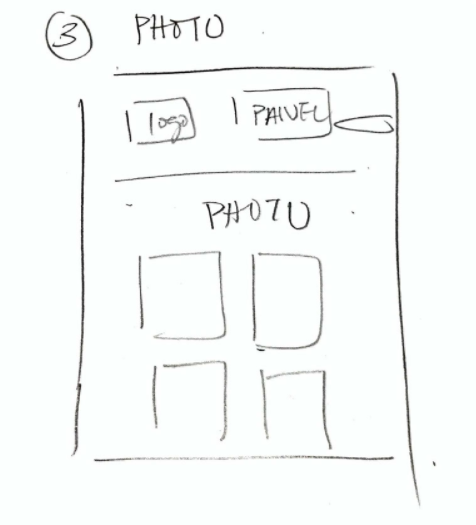 3 PHOTO
logo PANEL
PHOTO